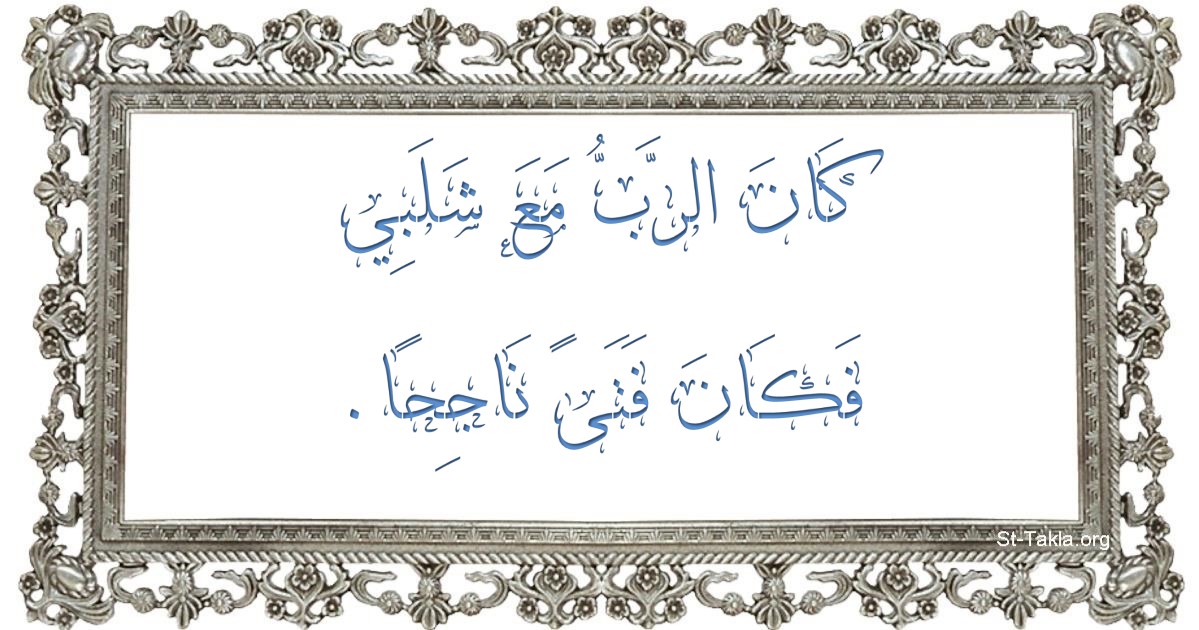 كَانَ الرَّبُّ مَعَ شَلَبِي
فَكَانَ فَتَىً نَاجِحًا .
St-Takla.org